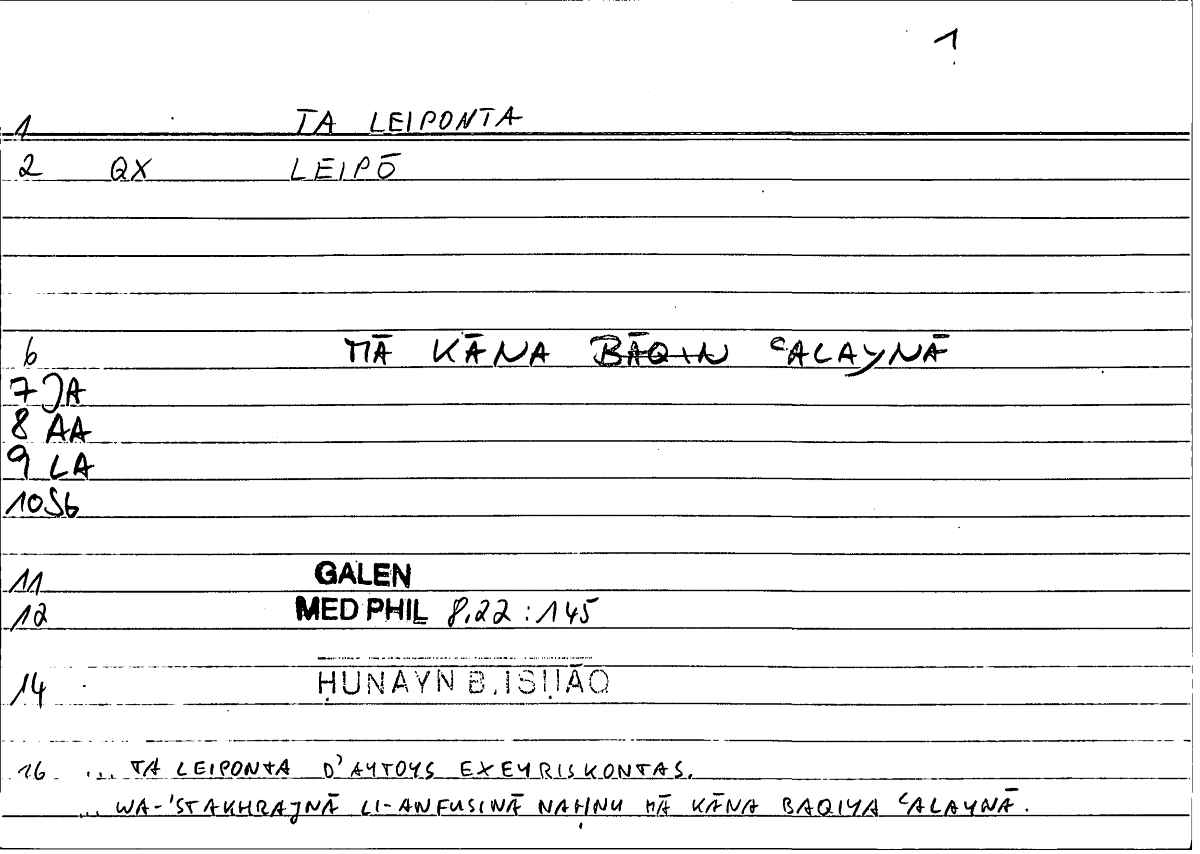 1
1 TA LEIPONTA
2 QX LEIPŌ
6 MĀ KĀNA BĀQIN ʿALAYNĀ
7 JA
8 AA
9 LA
10 Sb
11 GALEN
12 MED PHIL 8,22 : 145
14 ḤUNAYN B. ISḤĀQ
16 ... TA LEIPONTA D' AYTOYS EXEYRISKONTAS.
... WA-'STAKHRAJNĀ LI-ANFUSINĀ NAḤNU MĀ KĀNA BAQIYA ʿALAYNĀ.